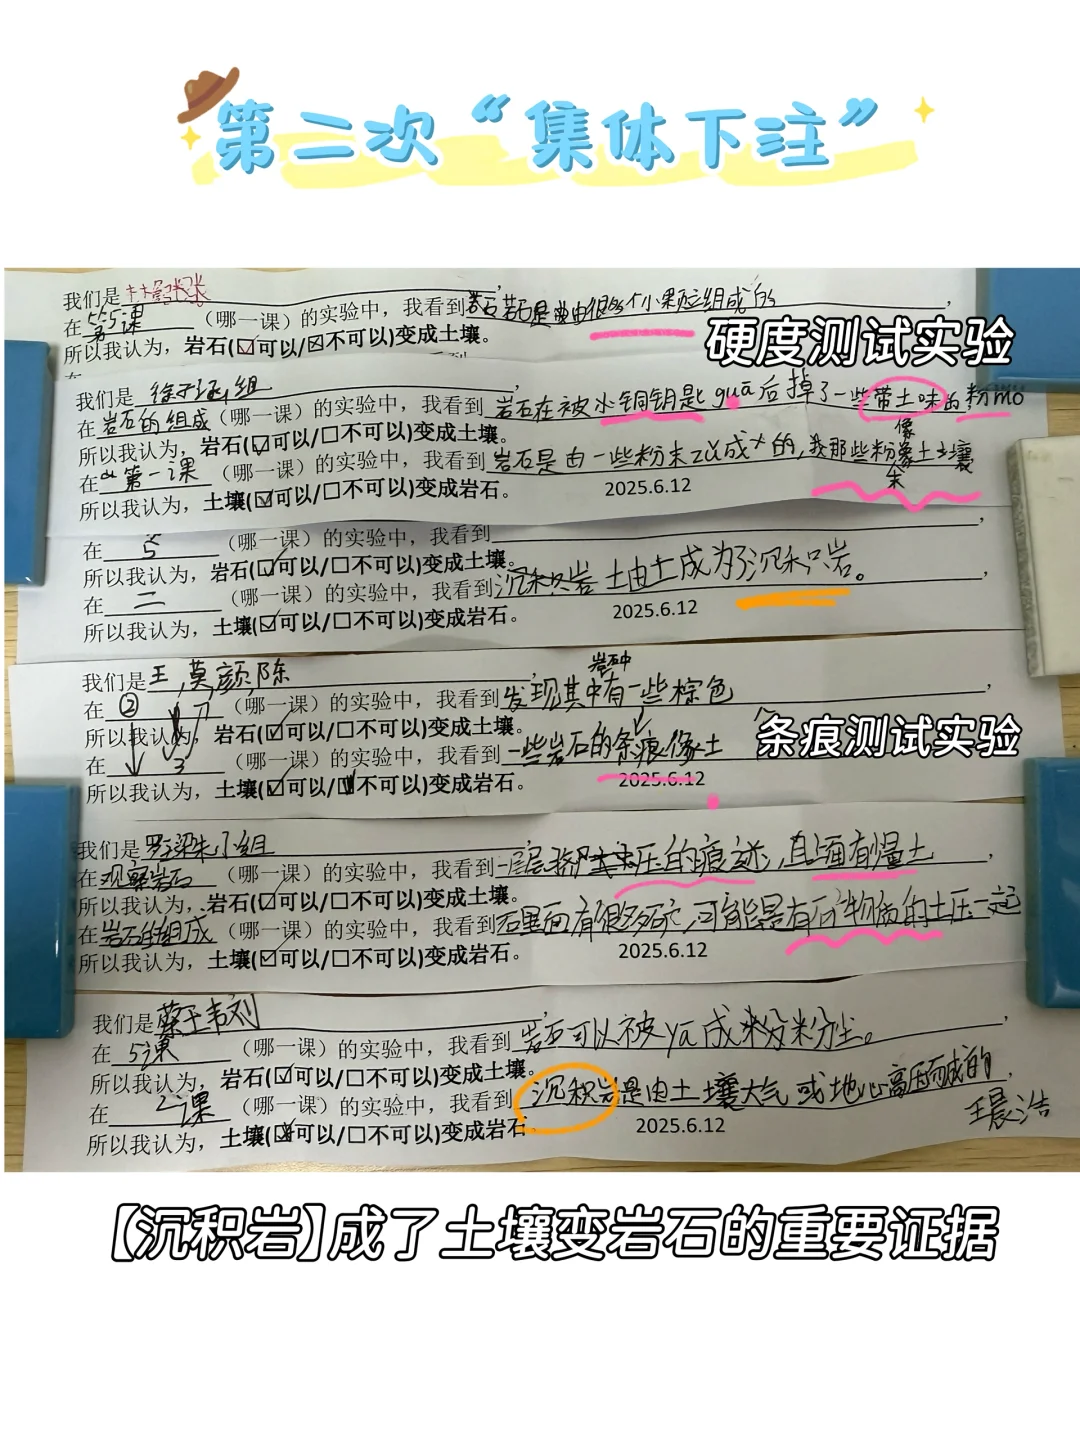 第二次“集体下注”
我们是
在 第5课 （哪一课）的实验中，我看到岩石是由很多个小颗粒组成的，
所以我认为，岩石(☑可以/☒不可以)变成土壤。
硬度测试实验
我们是 徐 组，
在岩石的组成（哪一课）的实验中，我看到 岩石在被小铜钥是匕guā后掉了一些带土味的粉mò
所以我认为，岩石(☑可以/☐不可以)变成土壤。
像
在 第一课 （哪一课）的实验中，我看到 岩石是由一些粉末 成 的，我那些粉象土壤
所以我认为，土壤(☑可以/☐不可以)变成岩石。 2025.6.12
在 5 （哪一课）的实验中，我看到 ，
所以我认为，岩石(☑可以/☐不可以)变成土壤。
在 二 （哪一课）的实验中，我看到沉积岩 土由土成为了沉积岩。，
所以我认为，土壤(☑可以/☐不可以)变成岩石。 2025.6.12
我们是王，莫，颜，陈 ，
岩石中
在 ② （哪一课）的实验中，我看到发现其中有一些棕色 ，
所以我认为，岩石(☑可以/☐不可以)变成土壤。
条痕测试实验
在 3 （哪一课）的实验中，我看到 一些岩石的条痕像土
所以我认为，土壤(☑可以/☐不可以)变成岩石。 2025.6.12
我们是 罗梁朱小组
在观察岩石（哪一课）的实验中，我看到一层层 压的痕迹，且缅有壃土，
所以我认为，岩石(☑可以/☐不可以)变成土壤。
在岩石的组成（哪一课）的实验中，我看到石里面有很多矿，可能是有矿物质的土压一起
所以我认为，土壤(☑可以/☐不可以)变成岩石。 2025.6.12
我们是蔡王韦刘 ，
在 5课 （哪一课）的实验中，我看到 岩石可以被ya成粉粉尘。，
所以我认为，岩石(☑可以/☐不可以)变成土壤。
在 2课 （哪一课）的实验中，我看到 沉积岩是由土壤大气或地心高压 成的，
所以我认为，土壤(☑可以/☐不可以)变成岩石。 2025.6.12 王晨浩
【沉积岩】成了土壤变岩石的重要证据